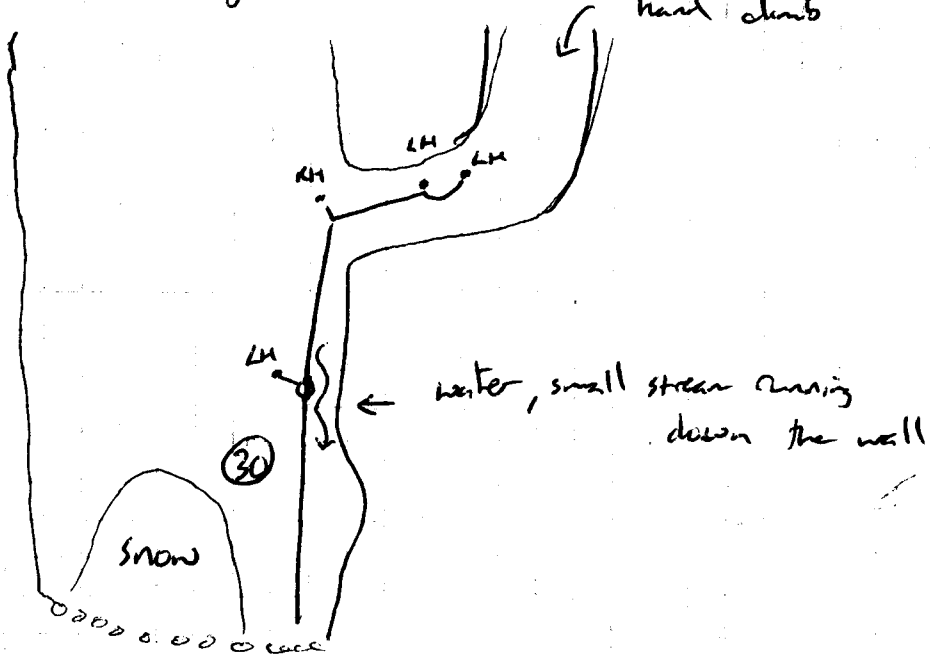 hand climb
LH
LH
RH
LH
water, small stream running
down the wall
30
Snow